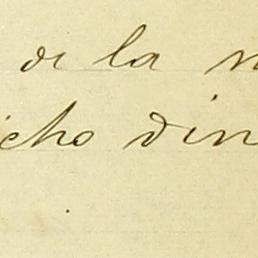 de la
icho din